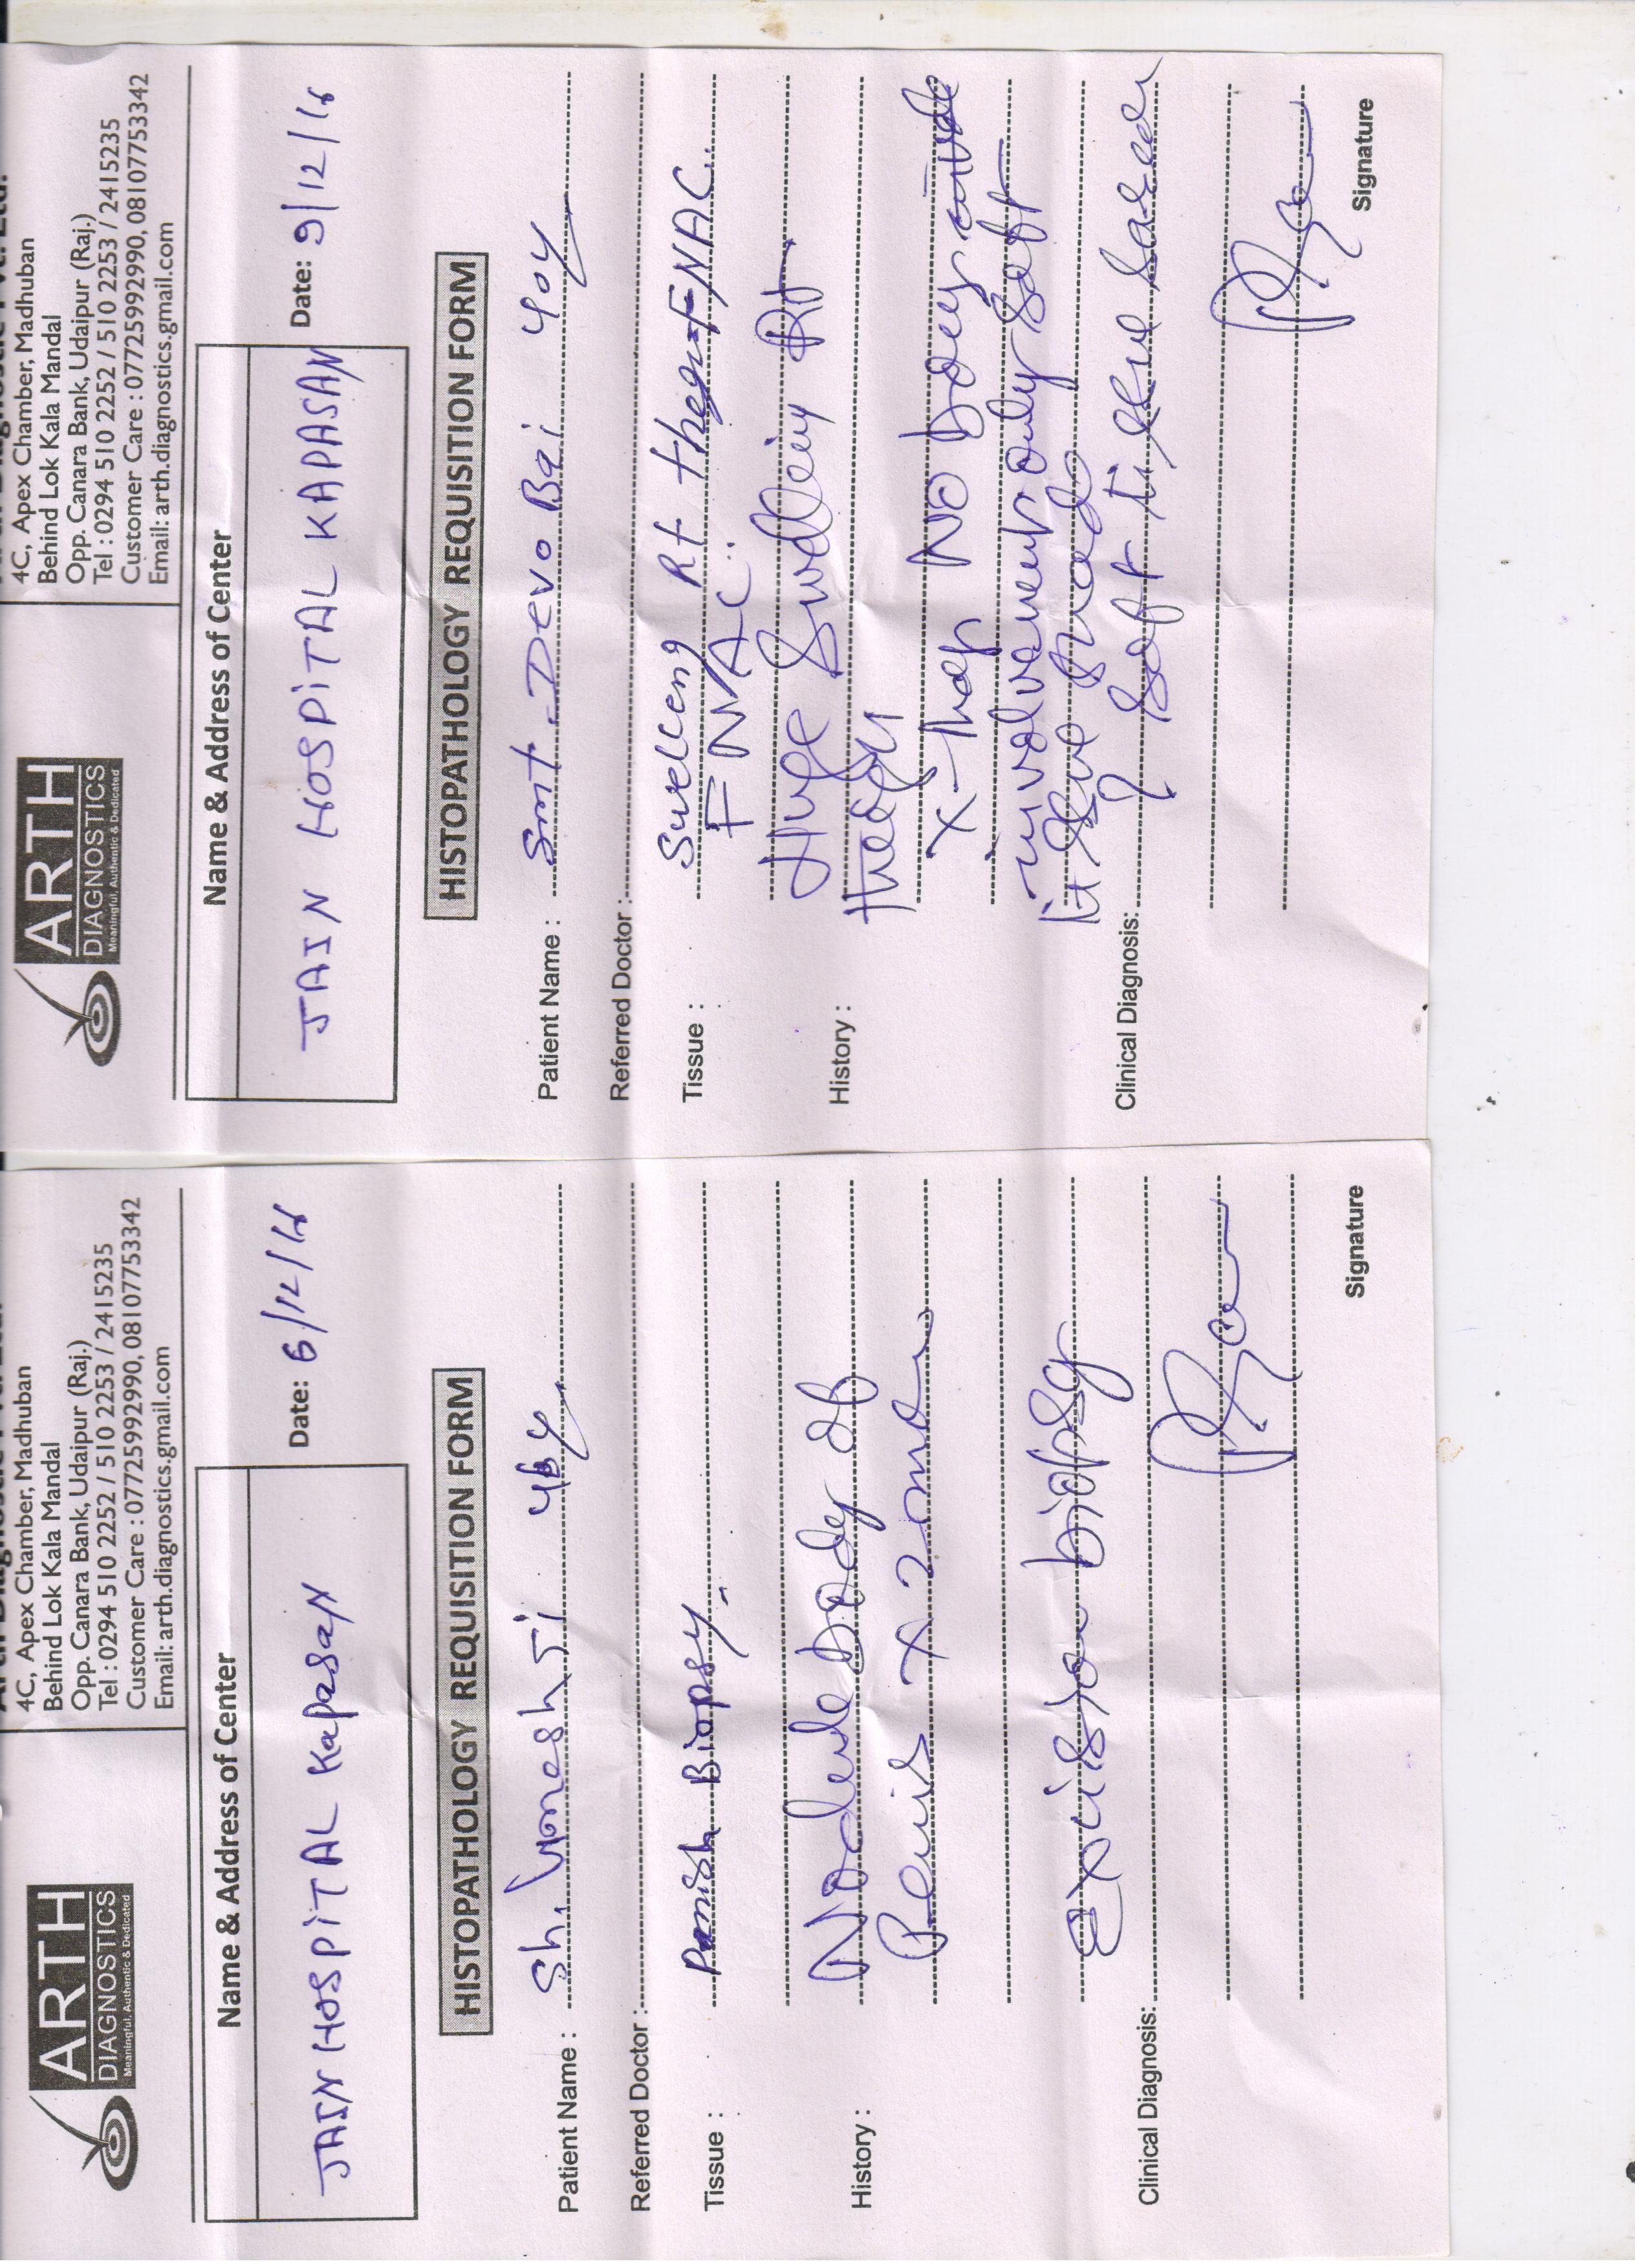 ARTH
DIAGNOSTICS
Meaningful, Authentic & Dedicated
4C, Apex Chamber, Madhuban
Behind Lok Kala Mandal
Opp. Canara Bank, Udaipur (Raj.)
Tel : 0294 510 2252 / 510 2253 / 2415235
Customer Care : 07725992990, 08107753342
Email: arth.diagnostics.gmail.com
Name & Address of Center
JAIN HOSPITAL Kapasan
Date: 6/12/16
HISTOPATHOLOGY REQUISITION FORM
Patient Name : Sh. 46y
Referred Doctor :
Tissue : Biopsy
History : Nodule body of
Penis x 2 mon
Excision biopsy
Clinical Diagnosis:
Signature
ARTH
DIAGNOSTICS
Meaningful, Authentic & Dedicated
4C, Apex Chamber, Madhuban
Behind Lok Kala Mandal
Opp. Canara Bank, Udaipur (Raj.)
Tel : 0294 510 2252 / 510 2253 / 2415235
Customer Care : 07725992990, 08107753342
Email: arth.diagnostics.gmail.com
Name & Address of Center
JAIN HOSPITAL KAPASAN
Date: 9/12/16
HISTOPATHOLOGY REQUISITION FORM
Patient Name : Smt. Devo Bai 40y
Referred Doctor :
Tissue : Swelling Rt FNAC
FNAC
Huge Swelling Rt
History :
X- No bony
involvement only soft
Clinical Diagnosis: ? Soft
Signature